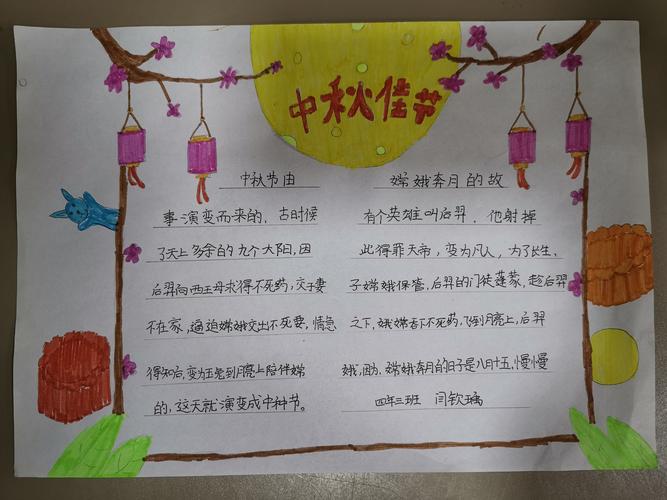 中秋佳节
中秋节由 嫦娥奔月的故
事演变而来的，古时候 有个英雄叫后羿，他射掉
了天上多余的九个大阳，因 此得罪天帝，变为凡人，为了长生，
后羿向西王母求得不死药，交于妻 子嫦娥保管，后羿的门徒蓬蒙，趁后羿
不在家，逼迫嫦娥交出不死药，情急 之下，嫦娥吞下不死药，飞到月亮上，后羿
得知后，变为玉兔到月亮上陪伴嫦 娥，因为，嫦娥奔月的日子是八月十五，慢慢
的，这天就演变成中种节。 四年三班 闫钦